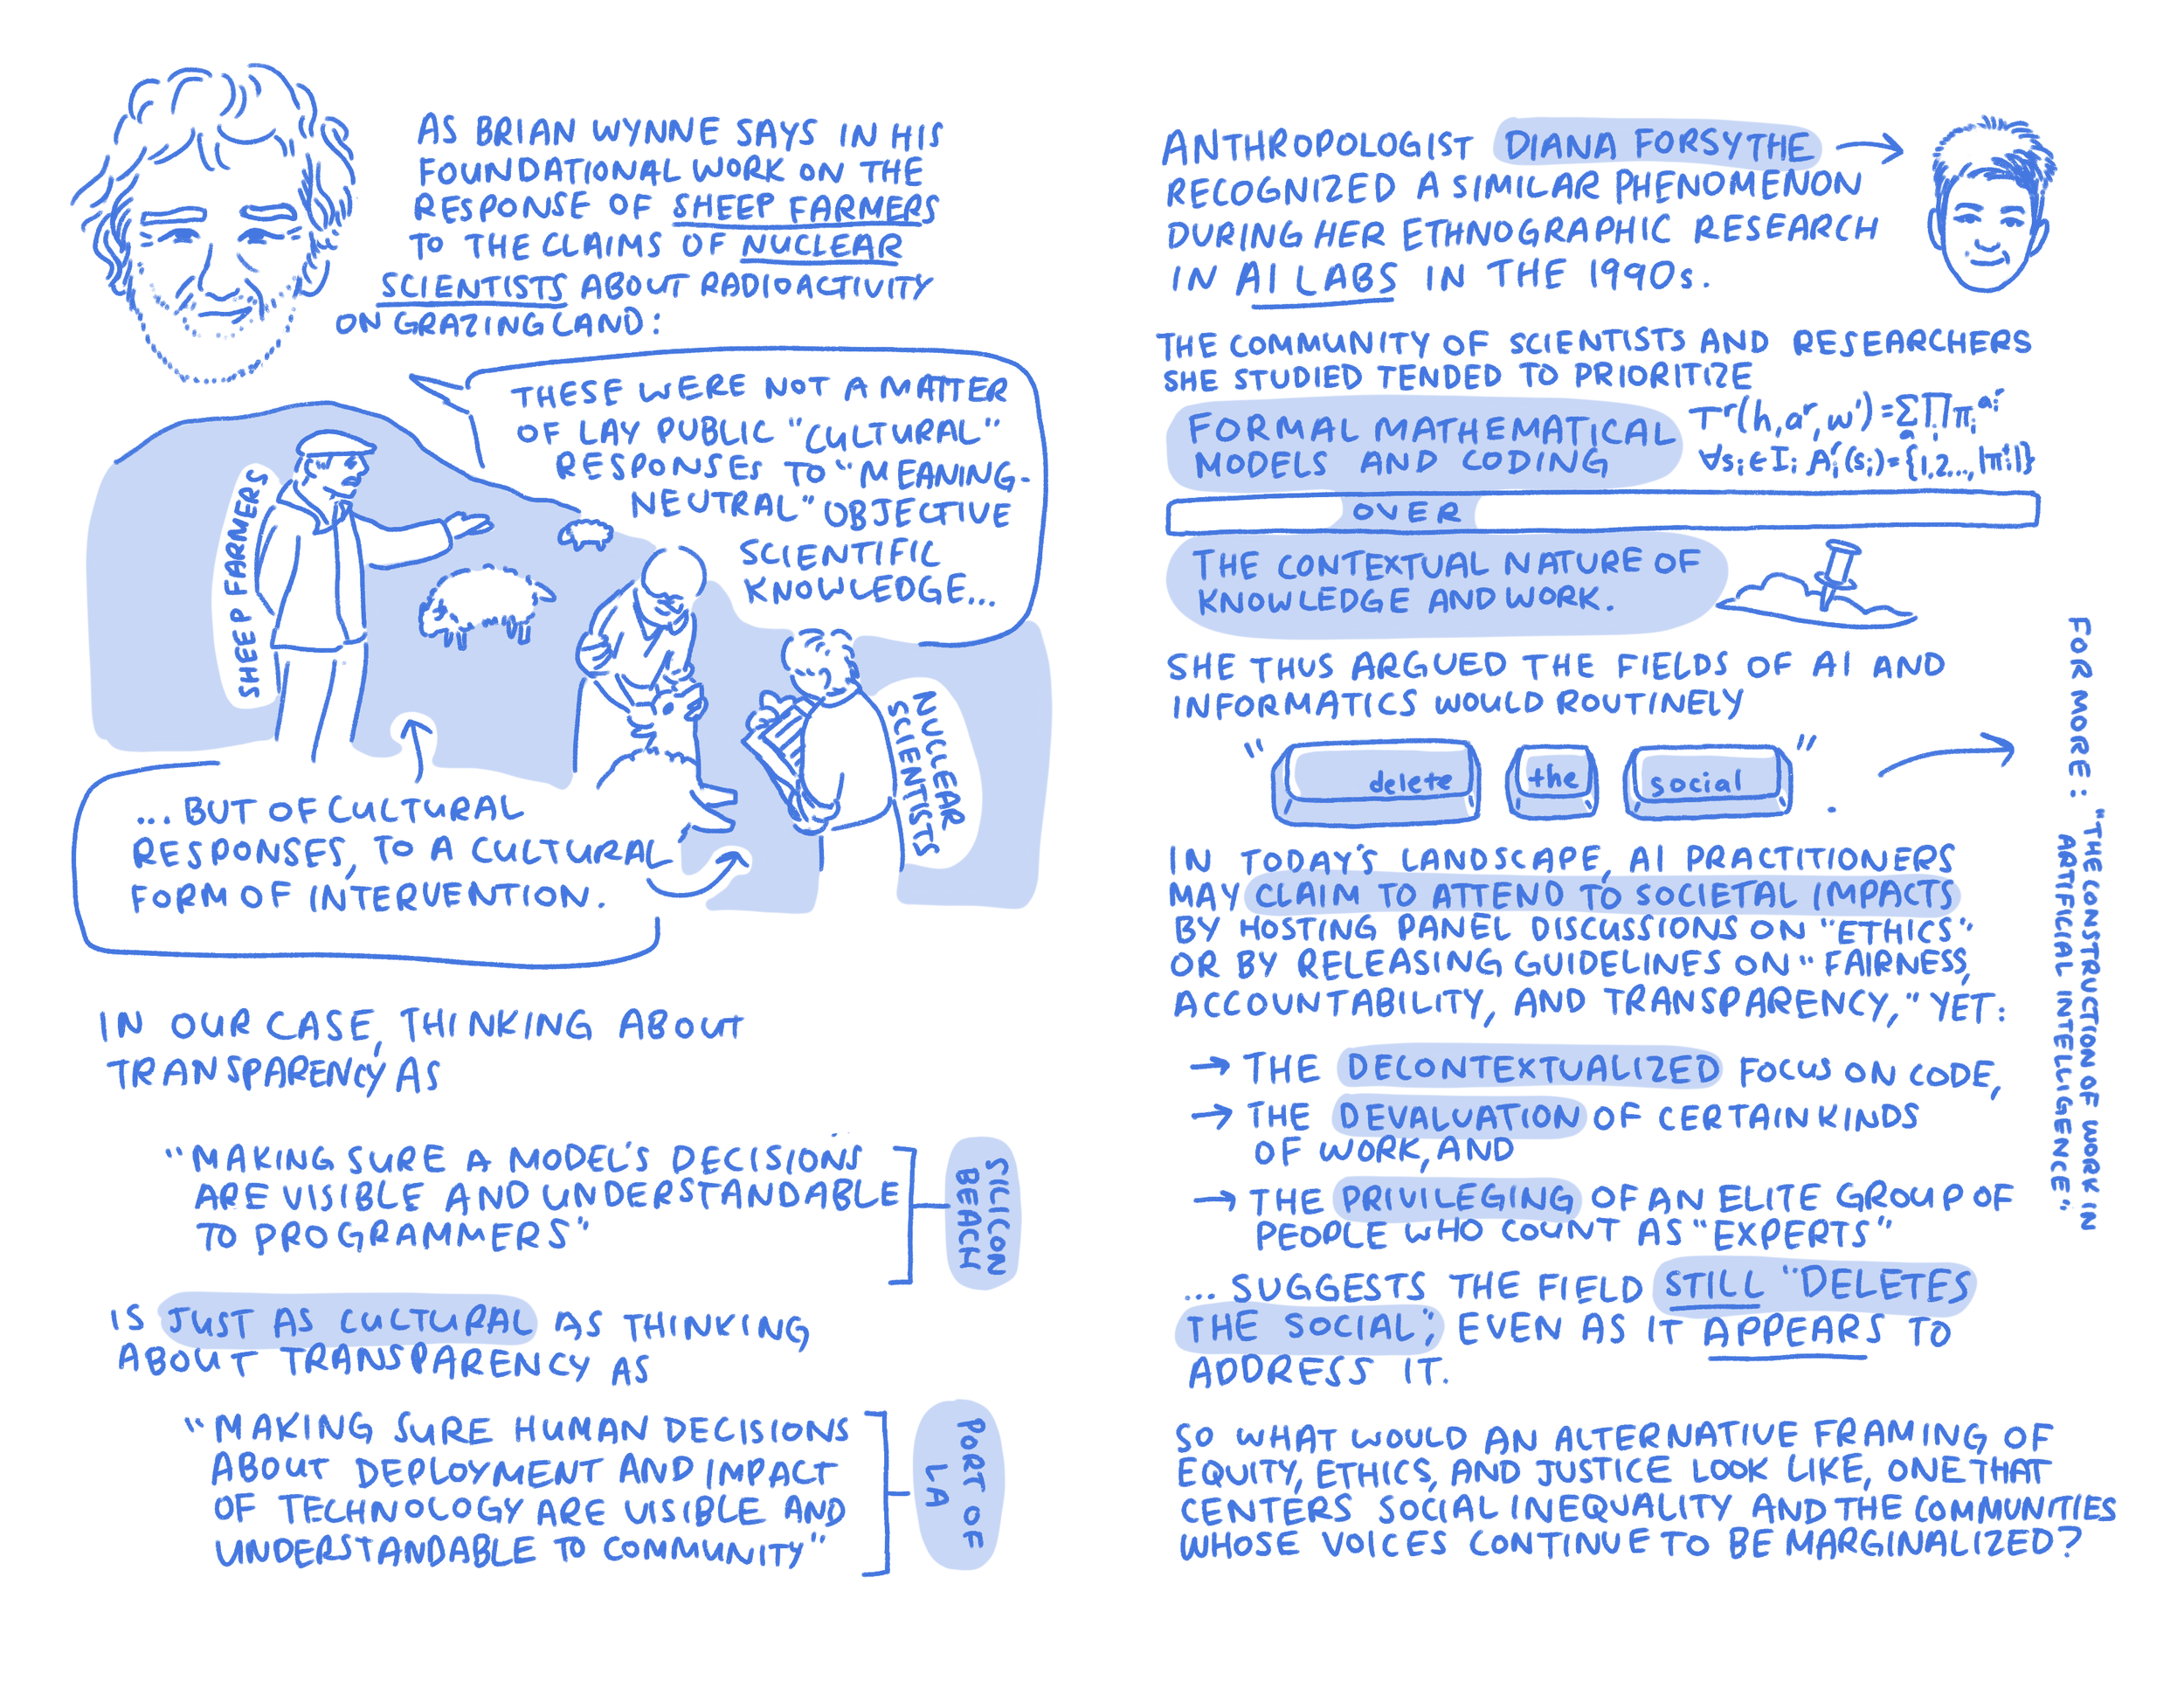 AS BRIAN WYNNE SAYS IN HIS
FOUNDATIONAL WORK ON THE
RESPONSE OF SHEEP FARMERS
TO THE CLAIMS OF NUCLEAR
SCIENTISTS ABOUT RADIOACTIVITY
ON GRAZING LAND:
THESE WERE NOT A MATTER
OF LAY PUBLIC "CULTURAL"
RESPONSES TO "MEANING-
NEUTRAL" OBJECTIVE
SCIENTIFIC
KNOWLEDGE...
SHEEP FARMERS
NUCLEAR
SCIENTISTS
...BUT OF CULTURAL
RESPONSES, TO A CULTURAL
FORM OF INTERVENTION.
IN OUR CASE, THINKING ABOUT
TRANSPARENCY AS
"MAKING SURE A MODEL'S DECISIONS
ARE VISIBLE AND UNDERSTANDABLE
TO PROGRAMMERS"
SILICON
BEACH
IS JUST AS CULTURAL AS THINKING
ABOUT TRANSPARENCY AS
"MAKING SURE HUMAN DECISIONS
ABOUT DEPLOYMENT AND IMPACT
OF TECHNOLOGY ARE VISIBLE AND
UNDERSTANDABLE TO COMMUNITY"
PORT OF
LA
ANTHROPOLOGIST DIANA FORSYTHE
RECOGNIZED A SIMILAR PHENOMENON
DURING HER ETHNOGRAPHIC RESEARCH
IN AI LABS IN THE 1990s.
THE COMMUNITY OF SCIENTISTS AND RESEARCHERS
SHE STUDIED TENDED TO PRIORITIZE
FORMAL MATHEMATICAL
MODELS AND CODING
OVER
THE CONTEXTUAL NATURE OF
KNOWLEDGE AND WORK.
SHE THUS ARGUED THE FIELDS OF AI AND
INFORMATICS WOULD ROUTINELY
"delete the social".
FOR MORE: "THE CONSTRUCTION OF WORK IN
ARTIFICIAL INTELLIGENCE"
IN TODAY'S LANDSCAPE, AI PRACTITIONERS
MAY CLAIM TO ATTEND TO SOCIETAL IMPACTS
BY HOSTING PANEL DISCUSSIONS ON "ETHICS"
OR BY RELEASING GUIDELINES ON "FAIRNESS,
ACCOUNTABILITY, AND TRANSPARENCY," YET:
→ THE DECONTEXTUALIZED FOCUS ON CODE,
→ THE DEVALUATION OF CERTAIN KINDS
OF WORK, AND
→ THE PRIVILEGING OF AN ELITE GROUP OF
PEOPLE WHO COUNT AS "EXPERTS"
... SUGGESTS THE FIELD STILL "DELETES
THE SOCIAL", EVEN AS IT APPEARS TO
ADDRESS IT.
SO WHAT WOULD AN ALTERNATIVE FRAMING OF
EQUITY, ETHICS, AND JUSTICE LOOK LIKE, ONE THAT
CENTERS SOCIAL INEQUALITY AND THE COMMUNITIES
WHOSE VOICES CONTINUE TO BE MARGINALIZED?